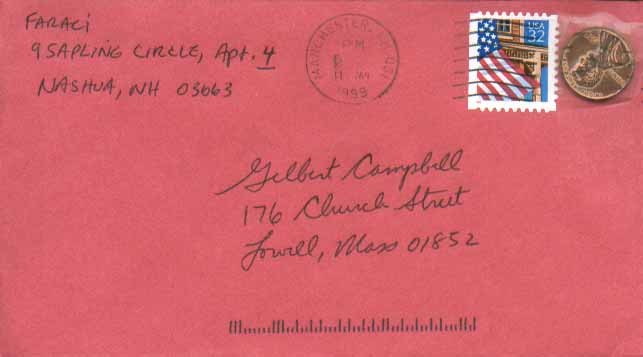 FARACI
9 SAPLING CIRCLE, Apt. 4
NASHUA, NH 03063
MANCHESTER, NH
PM
11
1999
USA
32
Gilbert Campbell
176 Church Street
Lowell, Mass 01852